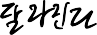 달라진다